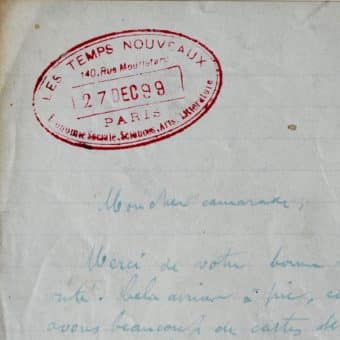 LES TEMPS NOUVEAUX
140, Rue Mouffetard
27 DEC 99
PARIS
Economie Sociale, Sciences, Arts, Littérature
Mon cher camarade,
Merci de votre bonne
vité. Cela arrive à pic,
avons beaucoup de cartes de